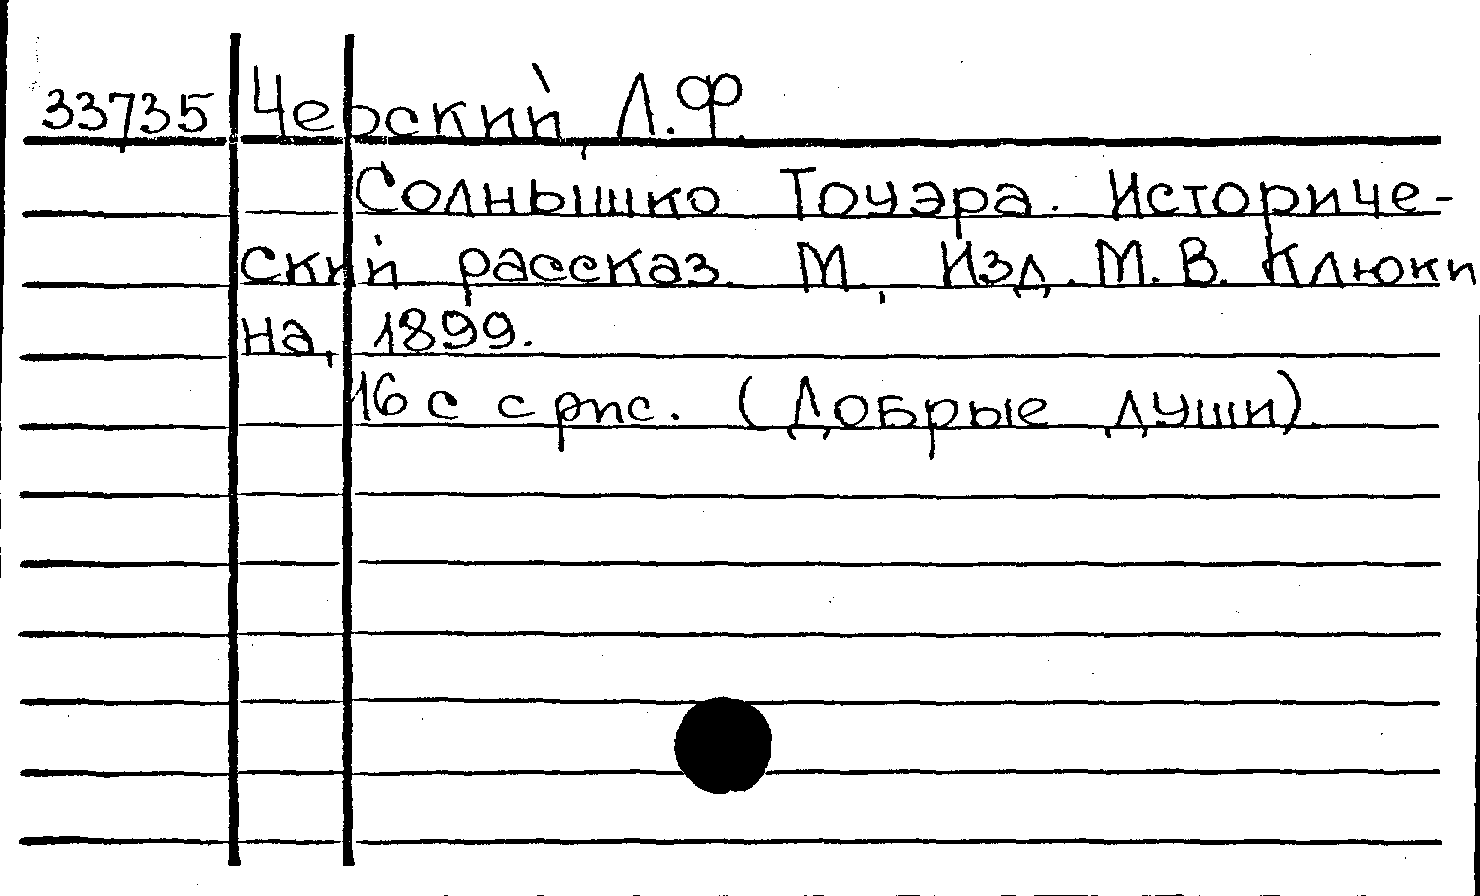 33735 Черский, Л.Ф.
Солнышко Тоуэра. Историче-
ский рассказ. М., Изд. М.В. Клюки
на, 1899.
16 с с рис. (Добрые души).